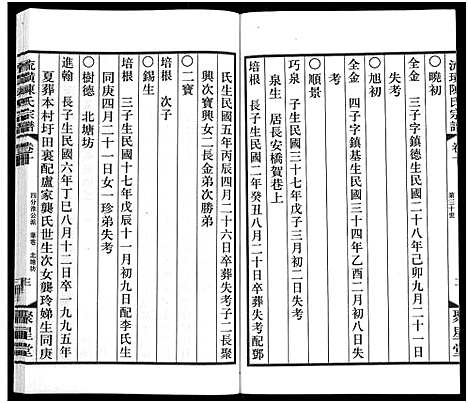 流璜陳氏宗譜
卷十
第三十世
聚星堂
〇曉初
全金 三子字鎮德生民國二十八年己卯九月二十一日
失考
〇旭初
全金 四子字鎮基生民國三十四年乙酉六月初八日失
考
〇順景
巧泉 子生民國三十七年戊子三月初九日
泉生 居長安橋賀巷上
培根 長子生民國二年癸丑八月二十日卒葬失考配鄧
氏生民國五年丙辰四月二十六日卒葬失考子二長聚
興次寶興女二長金弟次勝弟
〇二寶
培根 次子
〇錫生
培根 三子生民國十七年戊辰十一月初九日配李氏生
同庚四月二十一日女一珍弟失考
〇樹德 北塘坊
進翰 長子生民國六年丁巳八月十二日卒一九九五年
夏葬本村圩田裏配盧家龔氏世生次女龔玲娣生同庚
流璜陳氏宗譜
卷十
四分淮公派 華巷 北塘坊
聚星堂